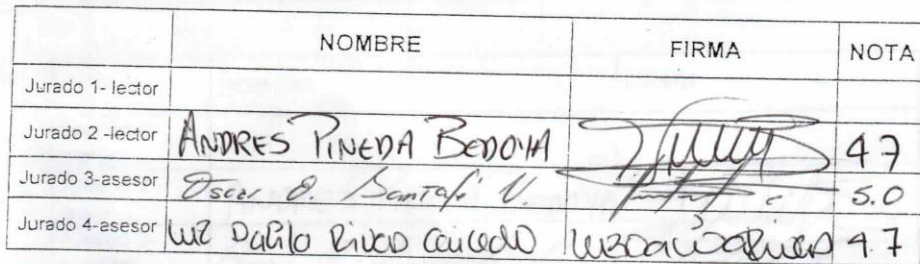 NOMBRE FIRMA NOTA
Jurado 1- lector
Jurado 2 -lector ANDRES PINEDA BEDOYA 4.7
Jurado 3-asesor Oscar O. Santafe V. 5.0
Jurado 4-asesor Luz Dario Rivas Caicedo 4.7